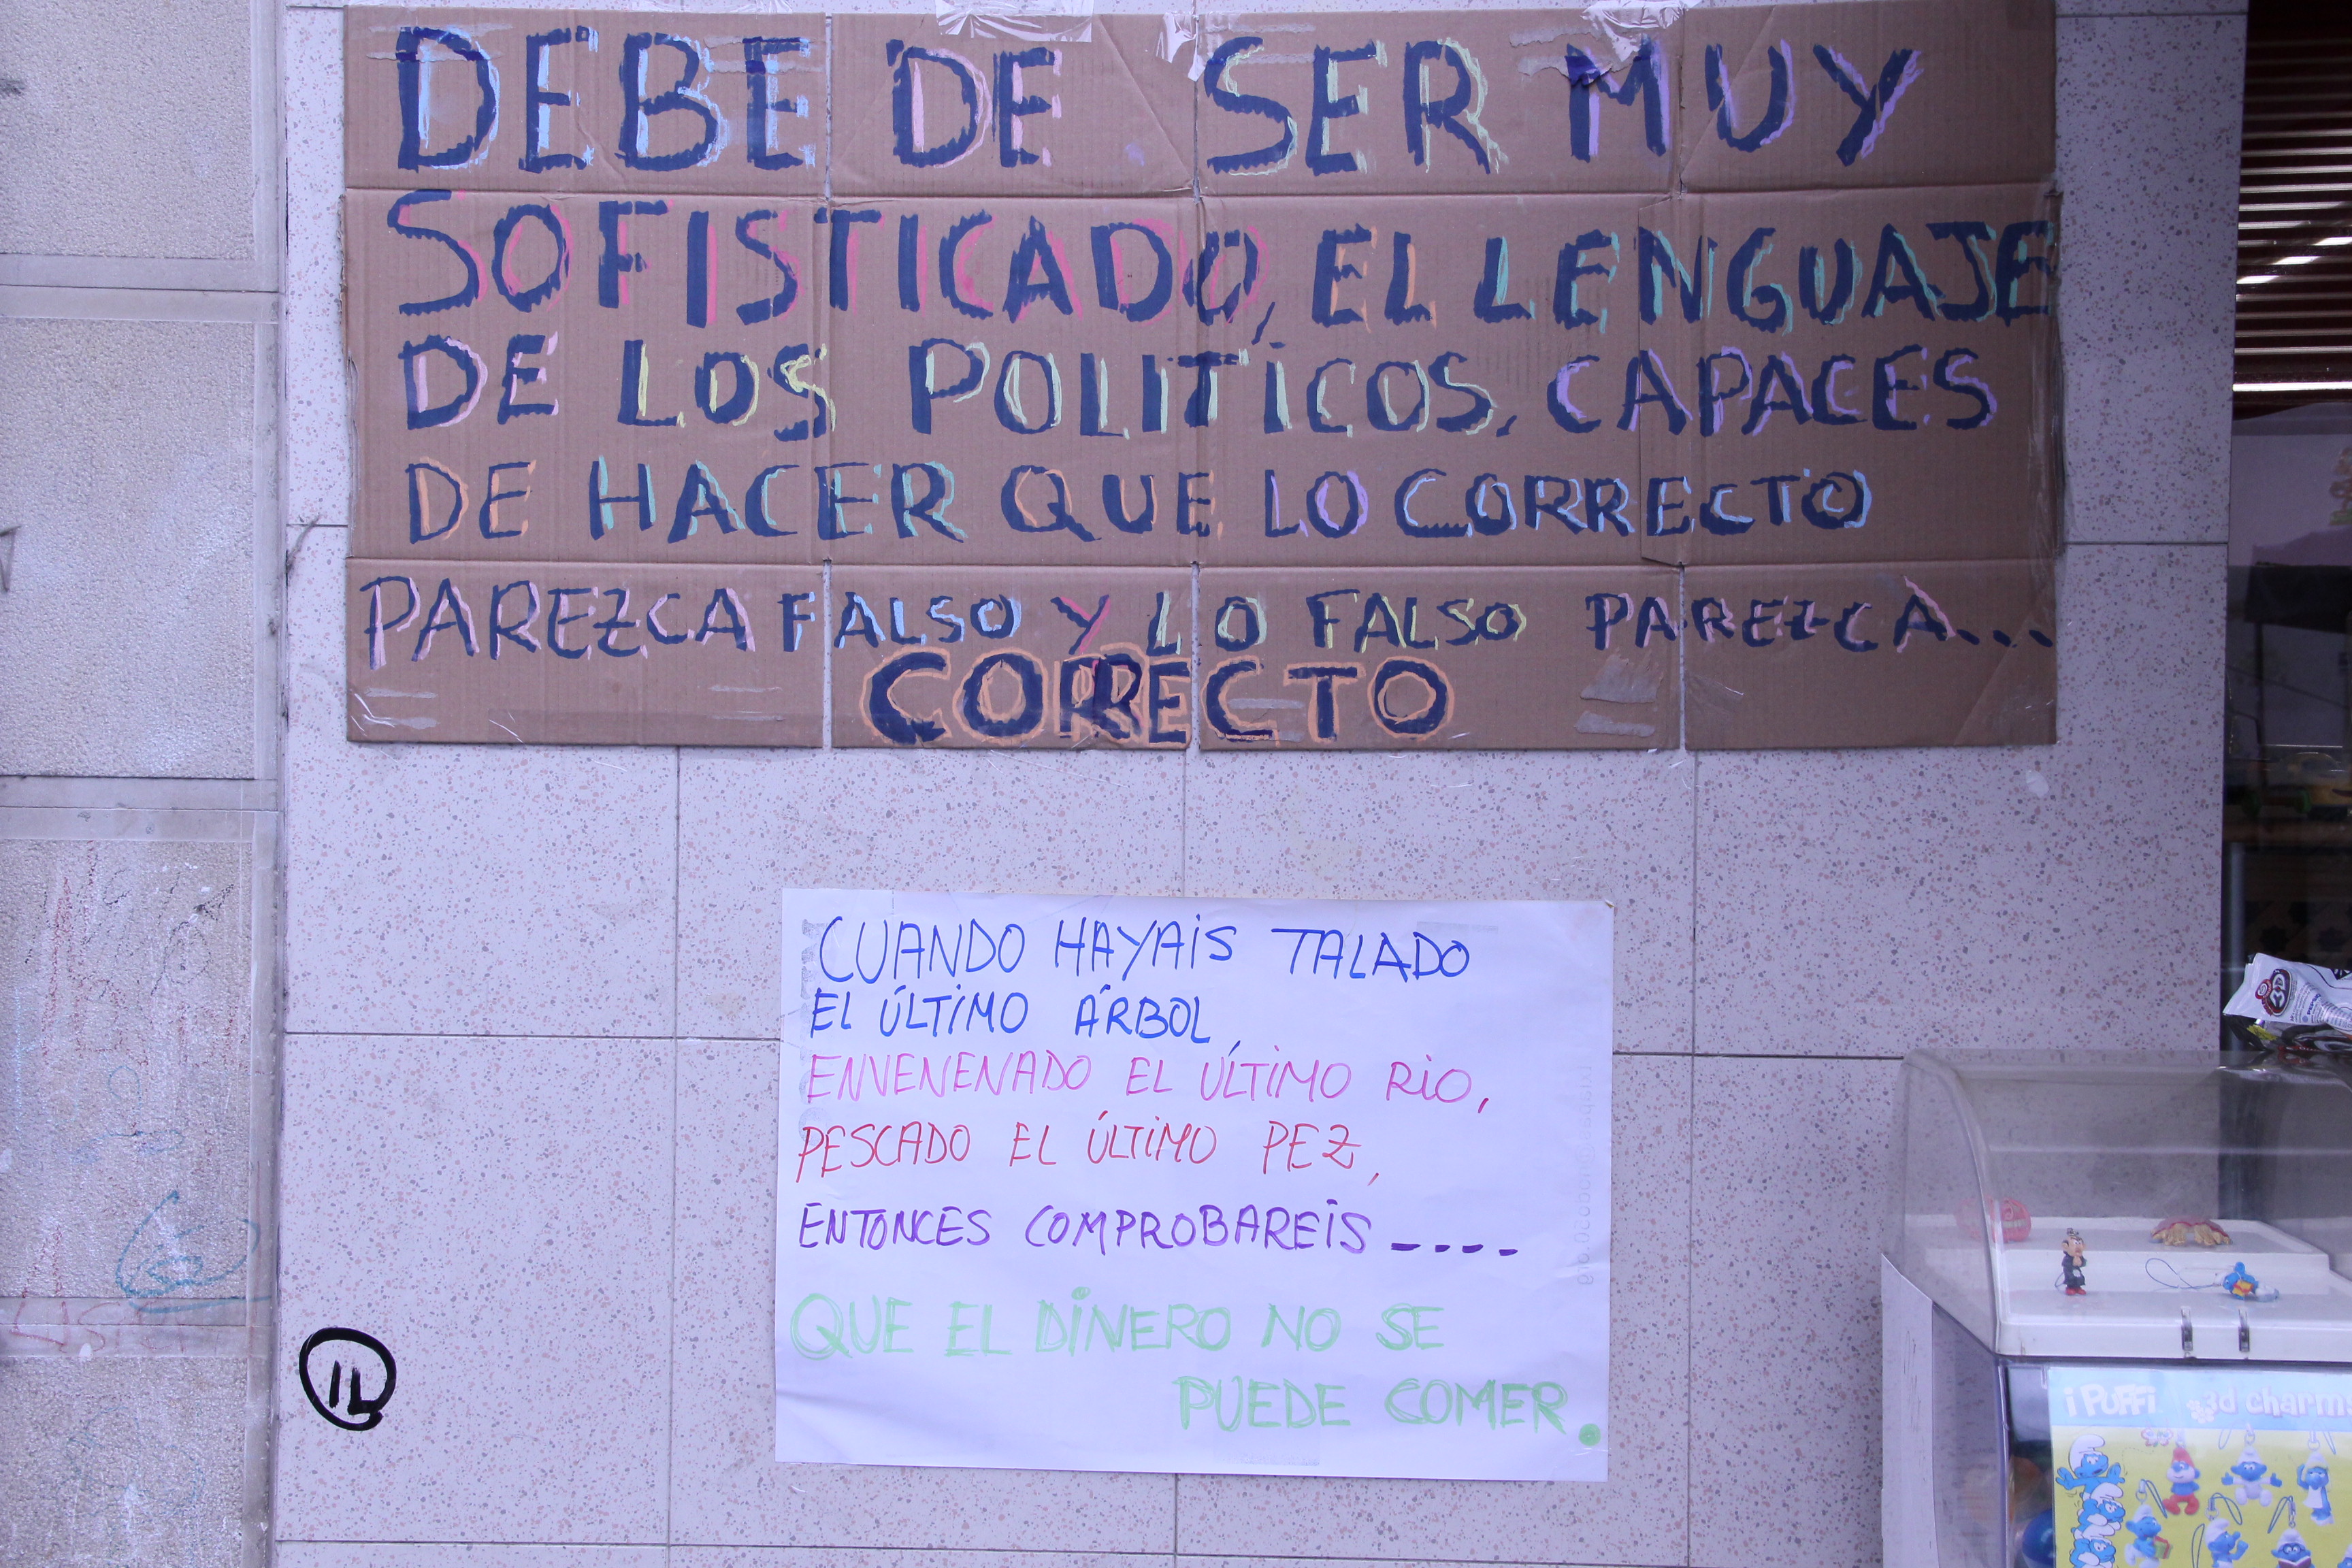 DEBE DE SER MUY
SOFISTICADO, EL LENGUAJE
DE LOS POLITICOS, CAPACES
DE HACER QUE LO CORRECTO
PAREZCA FALSO Y LO FALSO PAREZCA...
CORRECTO
CUANDO HAYAIS TALADO
EL ÚLTIMO ÁRBOL,
ENVENENADO EL ÚLTIMO RIO,
PESCADO EL ÚLTIMO PEZ,
ENTONCES COMPROBAREIS ----
QUE EL DINERO NO SE
PUEDE COMER.
IL
i PUFFi 3d charms